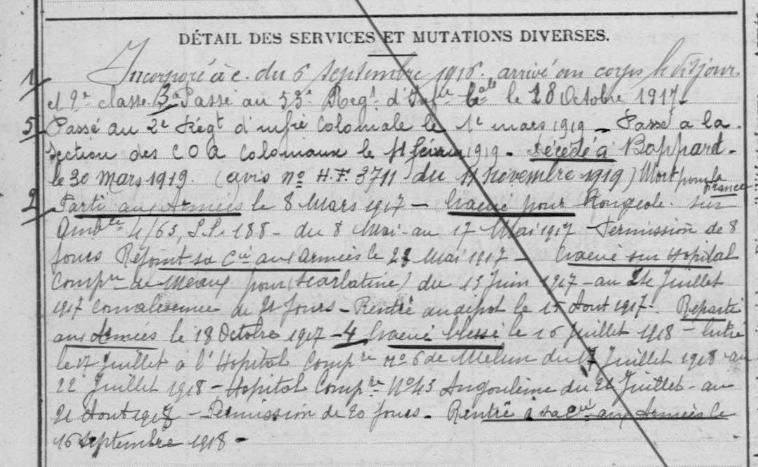 DÉTAIL DES SERVICES ET MUTATIONS DIVERSES.
1 Incorporé à c. du 6 Septembre 1916. arrivé au corps le dit jour
et 2e classe 3° Passé au 53e Regt d'Infie Cale le 18 Octobre 1917.
5 Passé au 2e Régt d'infie Coloniale le 1e mars 1919 - Passé a la
Section des C O A Coloniaux le 11 février 1919 - Décédé à Boppard -
le 30 mars 1919. (avis no H.F. 3711 du 11 novembre 1919) Mort pour la France
2 Parti aux Armées le 8 Mars 1917 - Evacué pour Rougeole sur
Ambce 4/63, S.P. 188 - du 8 Mai au 17 Mai 1917 - Permission de 8
jours Rejoint sa Cie aux armées le 27 Mai 1917 - Evacué sur Hopital
Compre de Meaux pour (scarlatine) du 13 Juin 1917 - au 24 Juillet
1917 Convalescence de 21 jours - Rentré au dépot le 15 Aout 1917. Reparti
aux Armées le 18 Octobre 1917 - 4 Evacué blessé le 16 juillet 1918 - Entré
le 17 Juillet a l'Hopital Compre No 6 de Melun du 17 Juillet 1918 - au
22 Juillet 1918 - Hopital Compre No 43 Angoulème du 24 Juillet - au
21 Aout 1918 - Permission de 20 jours - Rentré à sa Cie aux Armées le
16 Septembre 1918 -